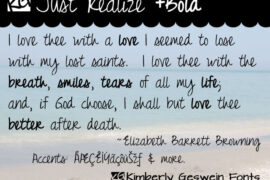 Just Realize +Bold
I love thee with a love I seemed to lose
with my lost saints. I love thee with the
breath, smiles, tears of all my life;
and, if God choose, I shall but love thee
better after death.
~Elizabeth Barrett Browning
Accents & more.
Kimberly Geswein Fonts